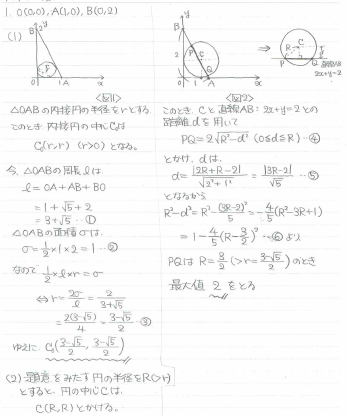 1. O(0,0), A(1,0), B(0,2)
(1)
y
B
2
r
O
1
A
x
<図1>
△OABの内接円の半径をrとする
このとき 内接円の中心C₁は
C₁(r,r) (r>0) となる。
今, △OABの周長 l は
l = OA+AB+BO
= 1+√5+2
= 3+√5 … ①
△OABの面積σは.
σ = 1/2 × 1 × 2 = 1 … ②
なので 1/2 × l × r = σ
⇔ r = 2σ/l = 2/(3+√5)
= 2(3-√5)/4 = (3-√5)/2 … ③
ゆえに C₁((3-√5)/2, (3-√5)/2)
(2) 題意をみたす円の半径をR(>r)
とすると, 円の中心Cは.
C(R,R) とかける。
y
B
2
P
C
Q
O
1
A
x
<図2>
⇒
C
R
R
d
P
Q
直線AB
2x+y=2
このとき, Cと直線AB: 2x+y=2 との
距離 d を用いて
PQ = 2√(R²-d²) (0≦d≦R) … ④
とかけ, d は.
d = |2R+R-2|/√(2²+1²) = |3R-2|/√5 … ⑤
となるから
R²-d² = R² - (3R-2)²/5 = -4/5(R²-3R+1)
= 1 - 4/5(R-3/2)² … ⑥ より
PQは R = 3/2 (> r = (3-√5)/2) のとき
最大値 2 をとる